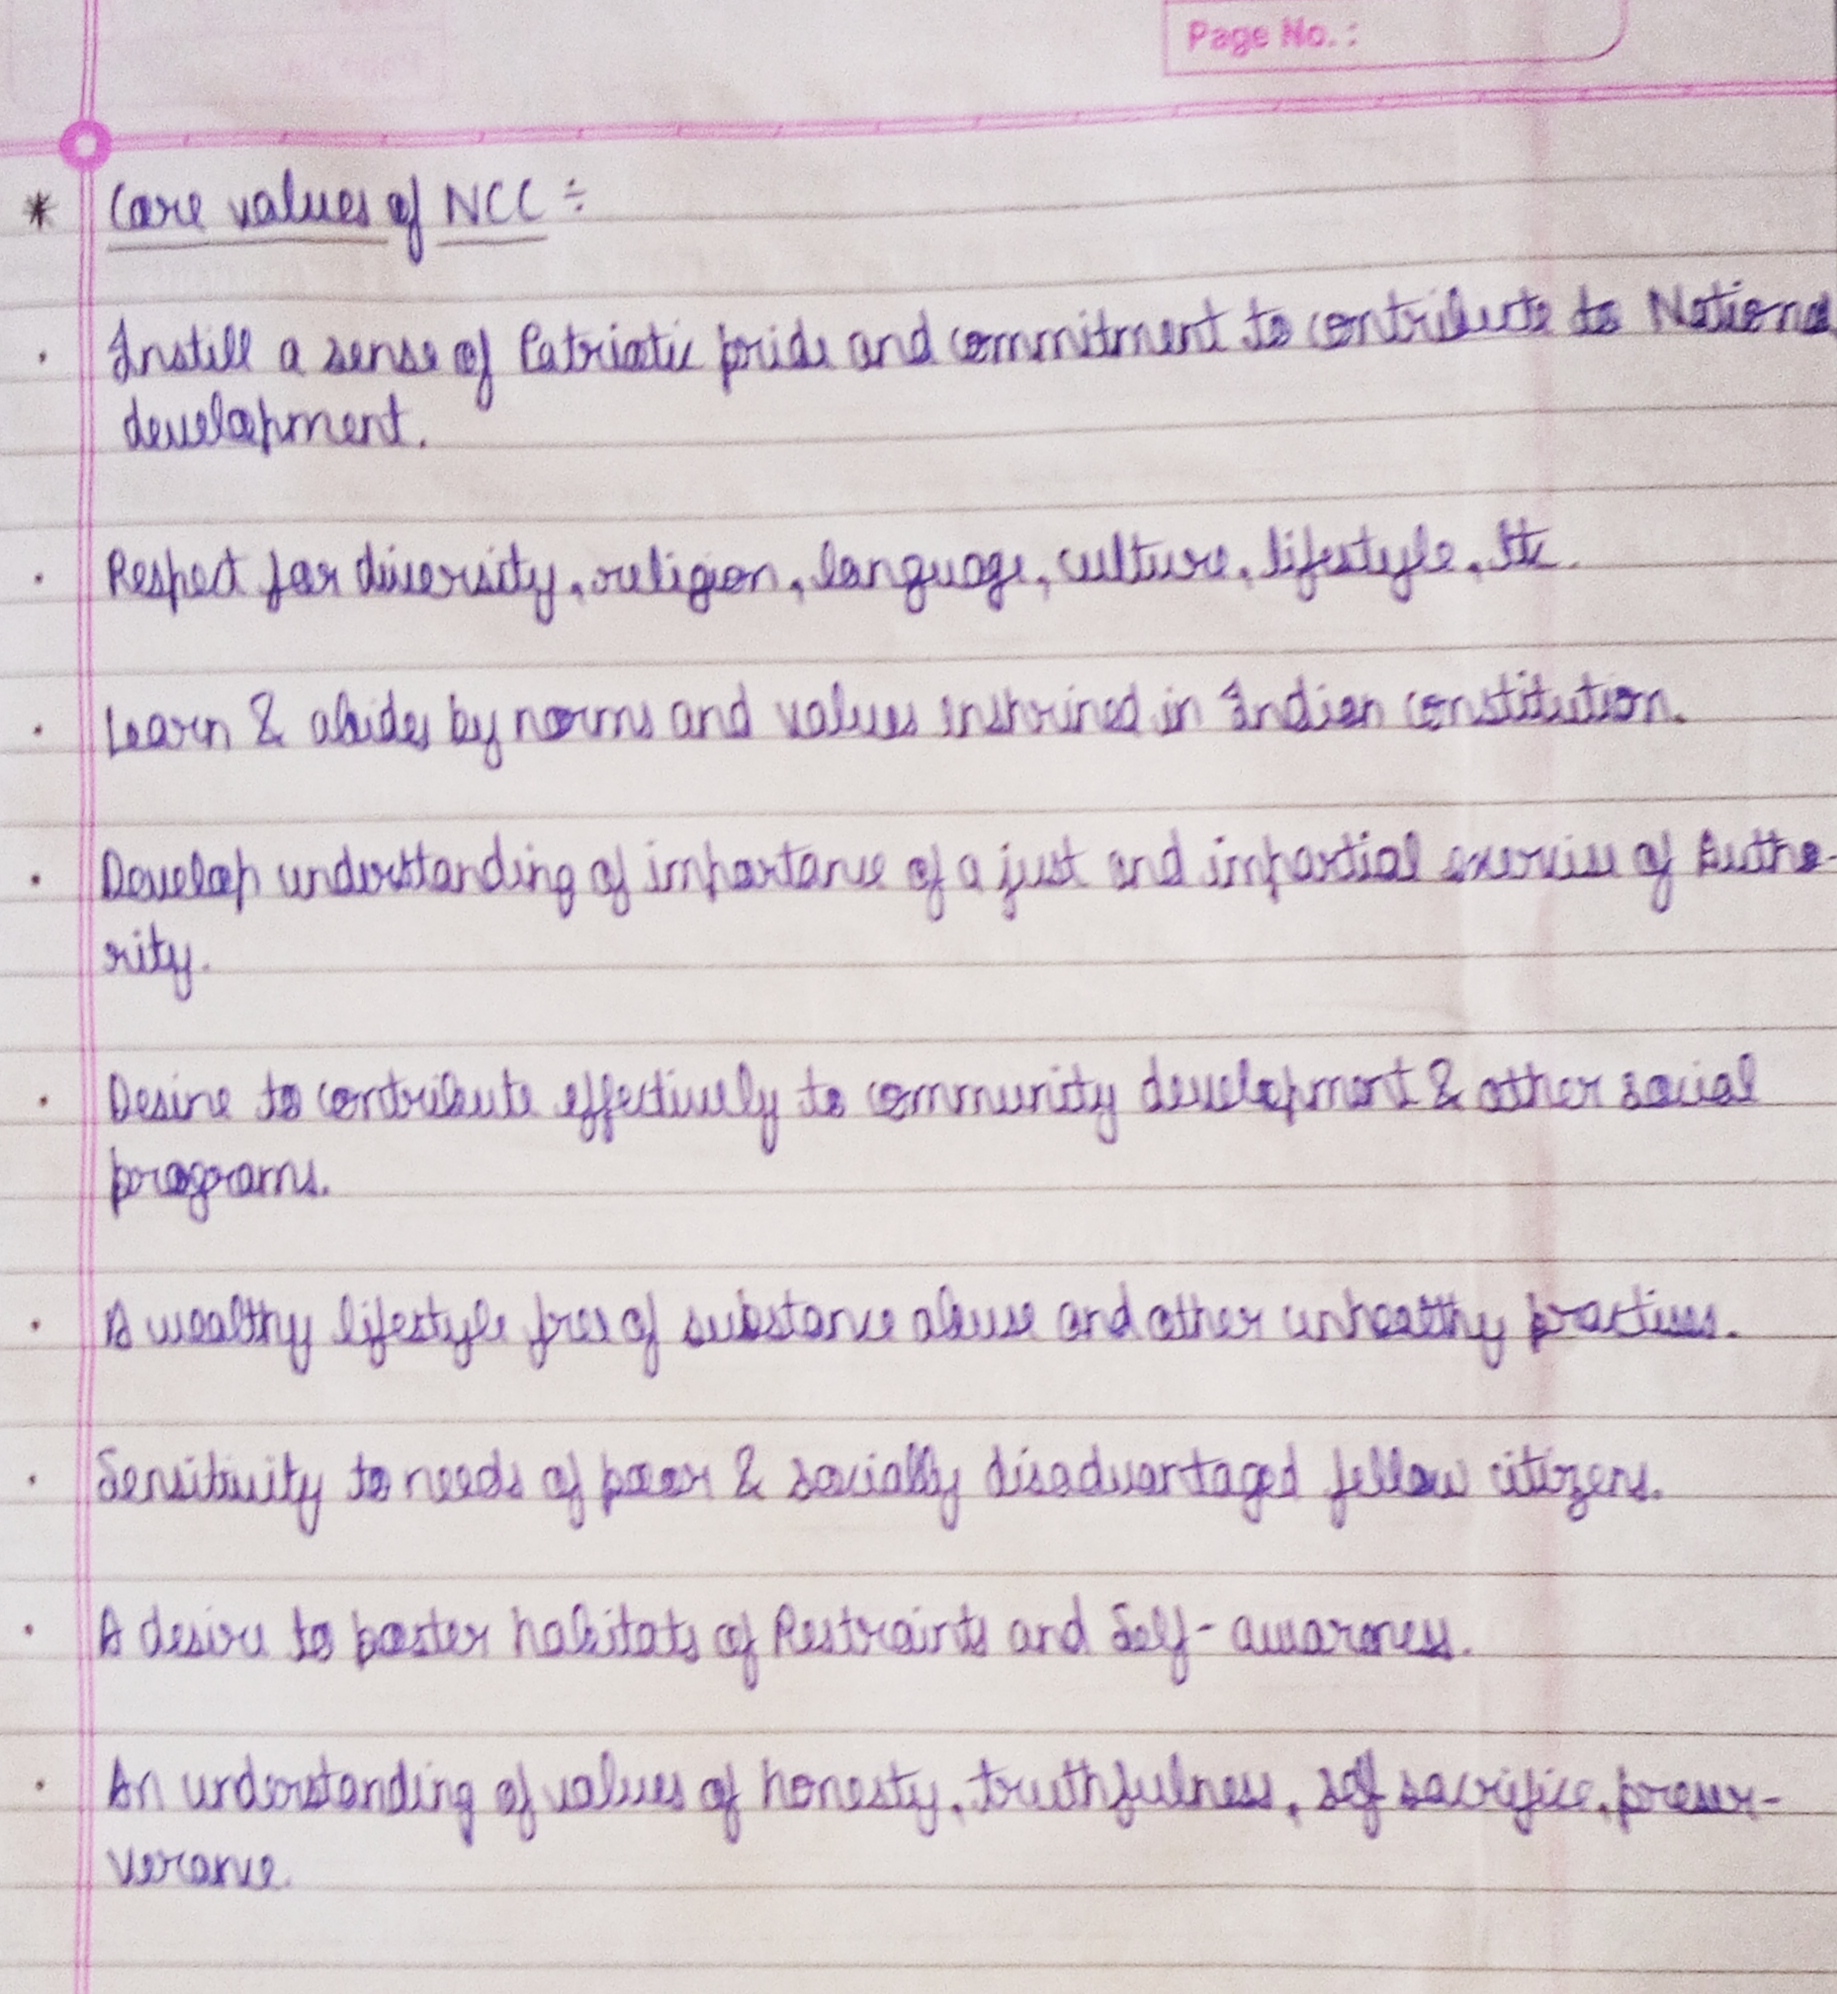 Page No. :
* Core values of NCC ÷
· Instill a sense of Patriotic pride and commitment to contribute to National
development.
· Respect for diversity, religion, language, culture, lifestyle, etc.
· Learn & abides by norms and values enshrined in Indian constitution.
· Develop understanding of importance of a just and impartial exercise of Autho-
rity.
· Desire to contribute effectively to community development & other social
programs.
· A wealthy lifestyle free of substance abuse and other unhealthy practices.
· Sensitivity to needs of poor & socially disadvantaged fellow citizens.
· A desire to poster habitats of Restraints and Self-awareness.
· An understanding of values of honesty, truthfulness, self sacrifice, preser-
verance.